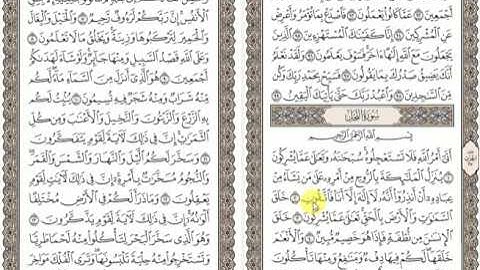 أَجْمَعِينَ ۝٩٢ عَمَّا كَانُوا۟ يَعْمَلُونَ ۝٩٣ فَٱصْدَعْ بِمَا تُؤْمَرُ وَأَعْرِضْ
عَنِ ٱلْمُشْرِكِينَ ۝٩٤ إِنَّا كَفَيْنَـٰكَ ٱلْمُسْتَهْزِءِينَ ۝٩٥ ٱلَّذِينَ
يَجْعَلُونَ مَعَ ٱللَّهِ إِلَـٰهًا ءَاخَرَ فَسَوْفَ يَعْلَمُونَ ۝٩٦ وَلَقَدْ نَعْلَمُ
أَنَّكَ يَضِيقُ صَدْرُكَ بِمَا يَقُولُونَ ۝٩٧ فَسَبِّحْ بِحَمْدِ رَبِّكَ وَكُن
مِّنَ ٱلسَّـٰجِدِينَ ۝٩٨ وَٱعْبُدْ رَبَّكَ حَتَّىٰ يَأْتِيَكَ ٱلْيَقِينُ ۝٩٩
سُورَةُ النَّحْلِ
بِسْمِ ٱللَّهِ ٱلرَّحْمَـٰنِ ٱلرَّحِيمِ
أَتَىٰٓ أَمْرُ ٱللَّهِ فَلَا تَسْتَعْجِلُوهُ سُبْحَـٰنَهُۥ وَتَعَـٰلَىٰ عَمَّا يُشْرِكُونَ
۝١ يُنَزِّلُ ٱلْمَلَـٰٓئِكَةَ بِٱلرُّوحِ مِنْ أَمْرِهِۦ عَلَىٰ مَن يَشَآءُ مِنْ
عِبَادِهِۦٓ أَنْ أَنذِرُوٓا۟ أَنَّهُۥ لَآ إِلَـٰهَ إِلَّآ أَنَا۠ فَٱتَّقُونِ ۝٢ خَلَقَ
ٱلسَّمَـٰوَٰتِ وَٱلْأَرْضَ بِٱلْحَقِّ تَعَـٰلَىٰ عَمَّا يُشْرِكُونَ ۝٣ خَلَقَ
ٱلْإِنسَـٰنَ مِن نُّطْفَةٍ فَإِذَا هُوَ خَصِيمٌ مُّبِينٌ ۝٤ وَٱلْأَنْعَـٰمَ
خَلَقَهَا لَكُمْ فِيهَا دِفْءٌ وَمَنَـٰفِعُ وَمِنْهَا تَأْكُلُونَ
ٱلْأَنفُسِ إِنَّ رَبَّكُمْ لَرَءُوفٌ رَّحِيمٌ ۝٧ وَٱلْخَيْلَ وَٱلْبِغَالَ
وَٱلْحَمِيرَ لِتَرْكَبُوهَا وَزِينَةً وَيَخْلُقُ مَا لَا تَعْلَمُونَ ۝٨
وَعَلَى ٱللَّهِ قَصْدُ ٱلسَّبِيلِ وَمِنْهَا جَآئِرٌ وَلَوْ شَآءَ لَهَدَىٰكُمْ
أَجْمَعِينَ ۝٩ هُوَ ٱلَّذِىٓ أَنزَلَ مِنَ ٱلسَّمَآءِ مَآءً لَّكُم
مِّنْهُ شَرَابٌ وَمِنْهُ شَجَرٌ فِيهِ تُسِيمُونَ ۝١٠ يُنۢبِتُ لَكُم
بِهِ ٱلزَّرْعَ وَٱلزَّيْتُونَ وَٱلنَّخِيلَ وَٱلْأَعْنَـٰبَ وَمِن كُلِّ
ٱلثَّمَرَٰتِ إِنَّ فِى ذَٰلِكَ لَـَٔايَةً لِّقَوْمٍ يَتَفَكَّرُونَ ۝١١
وَسَخَّرَ لَكُمُ ٱلَّيْلَ وَٱلنَّهَارَ وَٱلشَّمْسَ وَٱلْقَمَرَ
وَٱلنُّجُومُ مُسَخَّرَٰتٌۢ بِأَمْرِهِۦٓ إِنَّ فِى ذَٰلِكَ لَـَٔايَـٰتٍ لِّقَوْمٍ
يَعْقِلُونَ ۝١٢ وَمَا ذَرَأَ لَكُمْ فِى ٱلْأَرْضِ مُخْتَلِفًا
أَلْوَٰنُهُۥٓ إِنَّ فِى ذَٰلِكَ لَـَٔايَةً لِّقَوْمٍ يَذَّكَّرُونَ ۝١٣
وَهُوَ ٱلَّذِى سَخَّرَ ٱلْبَحْرَ لِتَأْكُلُوا۟ مِنْهُ لَحْمًا طَرِيًّا
وَتَسْتَخْرِجُوا۟ مِنْهُ حِلْيَةً تَلْبَسُونَهَا وَتَرَى ٱلْفُلْكَ مَوَاخِرَ